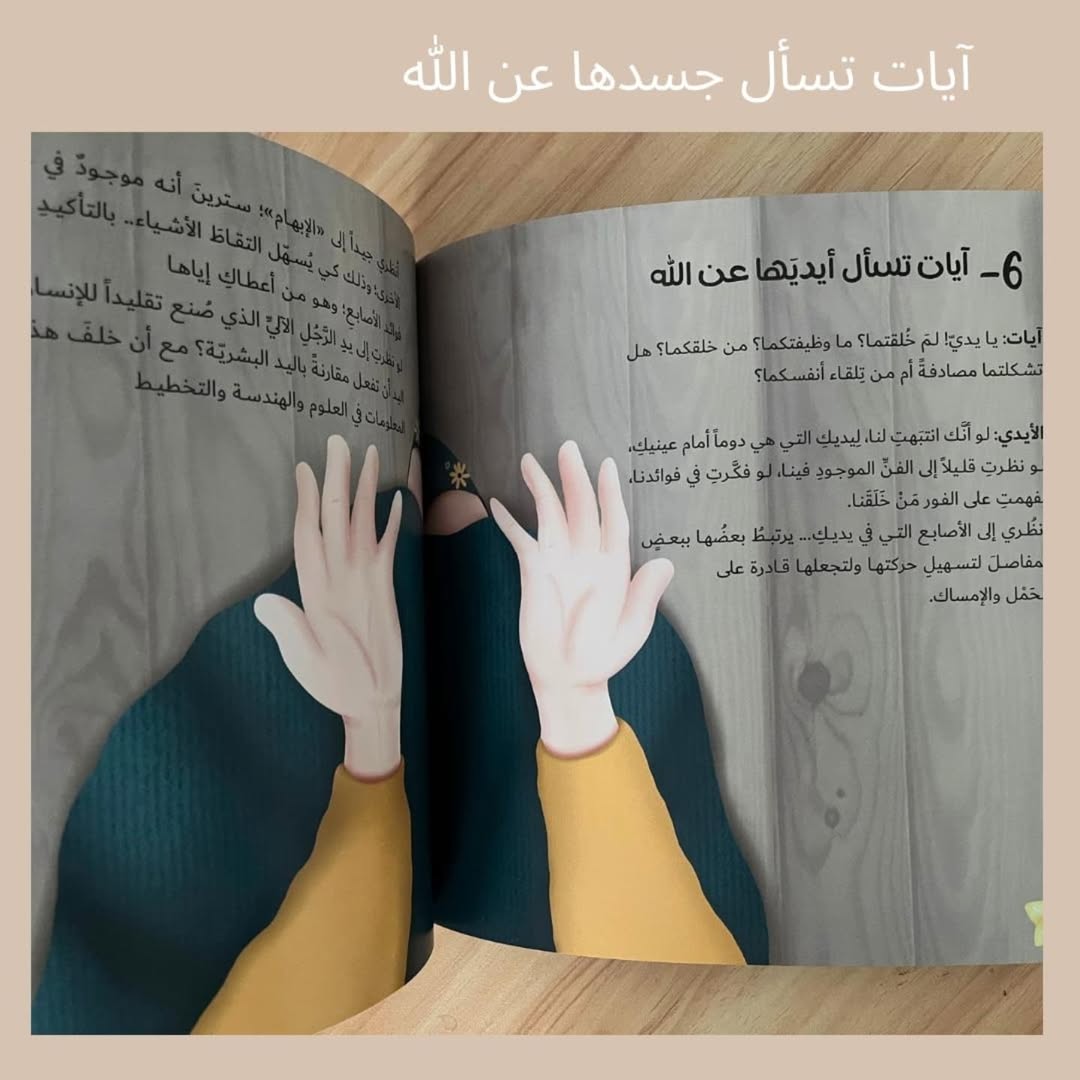 آيات تسأل جسدها عن الله
6- آيات تسأل أيديَها عن الله
آيات: يا يديّ! لمَ خُلقتما؟ ما وظيفتكما؟ من خلقكما؟ هل
تشكلتما مصادفةً أم من تِلقاء أنفسكما؟
الأيدي: لو أنَّك انتبَهتِ لنا، لِيديكِ التي هي دوماً أمام عينيكِ،
لو نظرتِ قليلاً إلى الفنِّ الموجودِ فينا، لو فكَّرتِ في فوائدنا،
لفهمتِ على الفور مَنْ خَلَقَنا.
نظُري إلى الأصابع التي في يديكِ... يرتبطُ بعضُها ببعضٍ
بمفاصلَ لتسهيلِ حركتها ولتجعلها قادرة على
لحَمْل والإمساك.
أنظري جيداً إلى «الإبهام»؛ سترينَ أنه موجودٌ في
الأخرى؛ وذلك كي يُسهّل التقاطَ الأشياء.. بالتأكيدِ
فوائد الأصابعِ؛ وهو من أعطاكِ إياها
لو نظرتِ إلى يدِ الرَّجُلِ الآليِّ الذي صُنع تقليداً للإنسا
اليد أن تفعل مقارنةً باليد البشريّة؟ مع أن خلفَ هذ
المعلومات في العلوم والهندسة والتخطيط